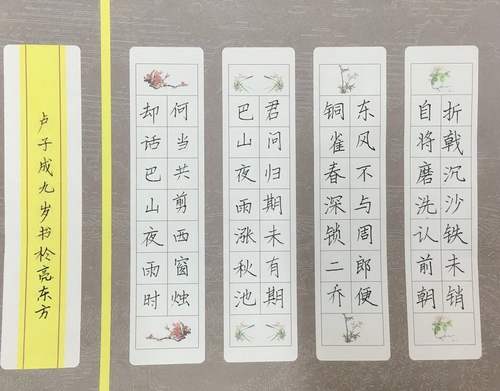 折戟沉沙铁未销
自将磨洗认前朝
东风不与周郎便
铜雀春深锁二乔
君问归期未有期
巴山夜雨涨秋池
何当共剪西窗烛
却话巴山夜雨时
卢子成九岁书於亮东方